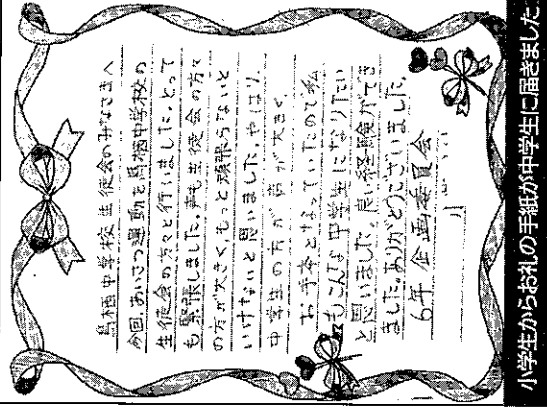 鳥栖中学校生徒会のみなさまへ
今回、あいさつ運動を鳥栖中学校の
生徒会の方々と行いました。とって
も緊張しました。声も生徒会の方々
の方が大きく、もっと頑張らないと
いけないと思いました。やはり、
中学生の方が声が大きく、
お手本となっていたので私
もこんな中学生になりたい
と思いました。良い経験ができ
ました。ありがとうございました。
6年 企画委員会
小学生からお礼の手紙が中学生に届きました